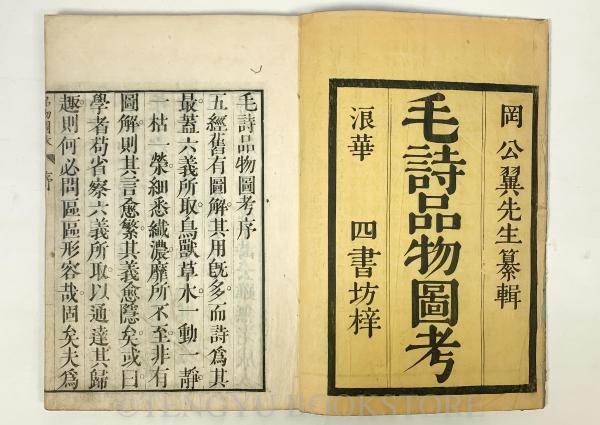 岡公翼先生纂輯
毛詩品物圖考
浪華 四書坊梓
毛詩品物圖考序
五經舊有圖解其用旣多而詩爲其
最蓋六義所取鳥獸草木一動一靜
一枯一榮細悉纖濃靡所不至非有
圖解則其言愈繁其義愈隱矣或曰
學者苟省察六義所取以通達其歸
趣則何必問區區形容哉固矣夫爲
品物圖攷 序
©TENGYU BOOKSTORE